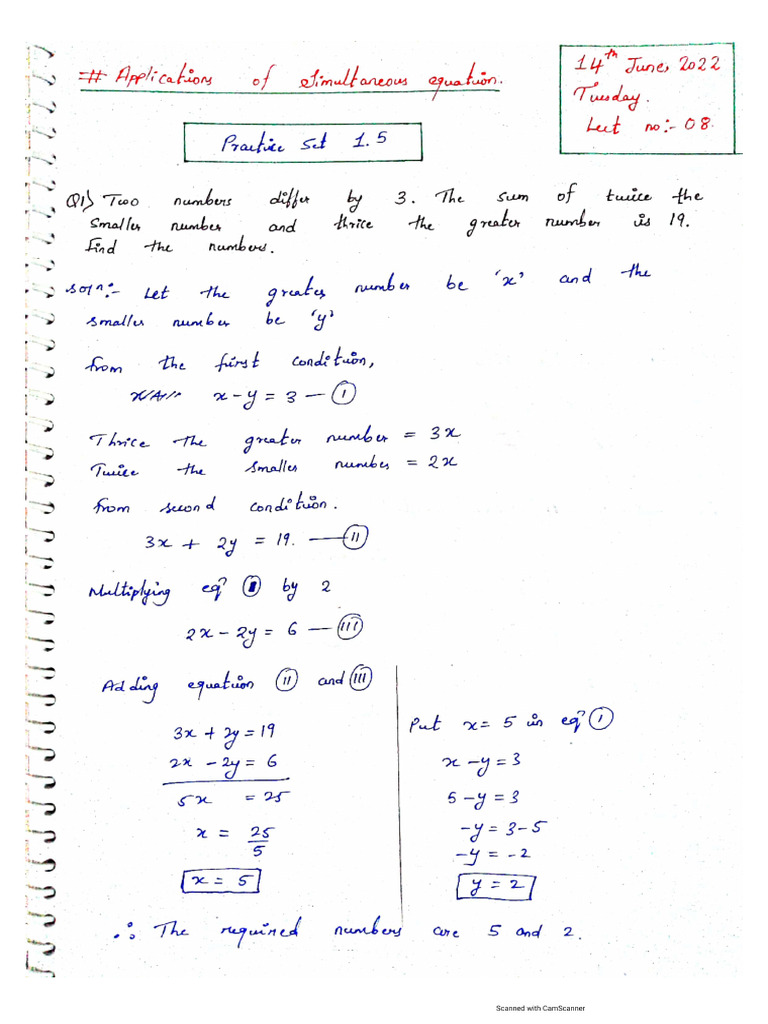 # Applications of Simultaneous equation.
14th June, 2022
Tuesday.
Lect no:- 08.
Practice Set 1.5
Q1) Two numbers differ by 3. The sum of twice the
smaller number and thrice the greater number is 19.
Find the numbers.
Soln:- Let the greater number be 'x' and the
smaller number be 'y'
from the first condition,
x - y = 3 — (I)
Thrice the greater number = 3x
Twice the smaller number = 2x
from second condition.
3x + 2y = 19. — (II)
Multiplying eqn (I) by 2
2x - 2y = 6 — (III)
Adding equation (II) and (III)
3x + 2y = 19
2x - 2y = 6
5x = 25
x = 25/5
x = 5
Put x = 5 in eqn (I)
x - y = 3
5 - y = 3
-y = 3-5
-y = -2
y = 2
∴ The required numbers are 5 and 2.
Scanned with CamScanner